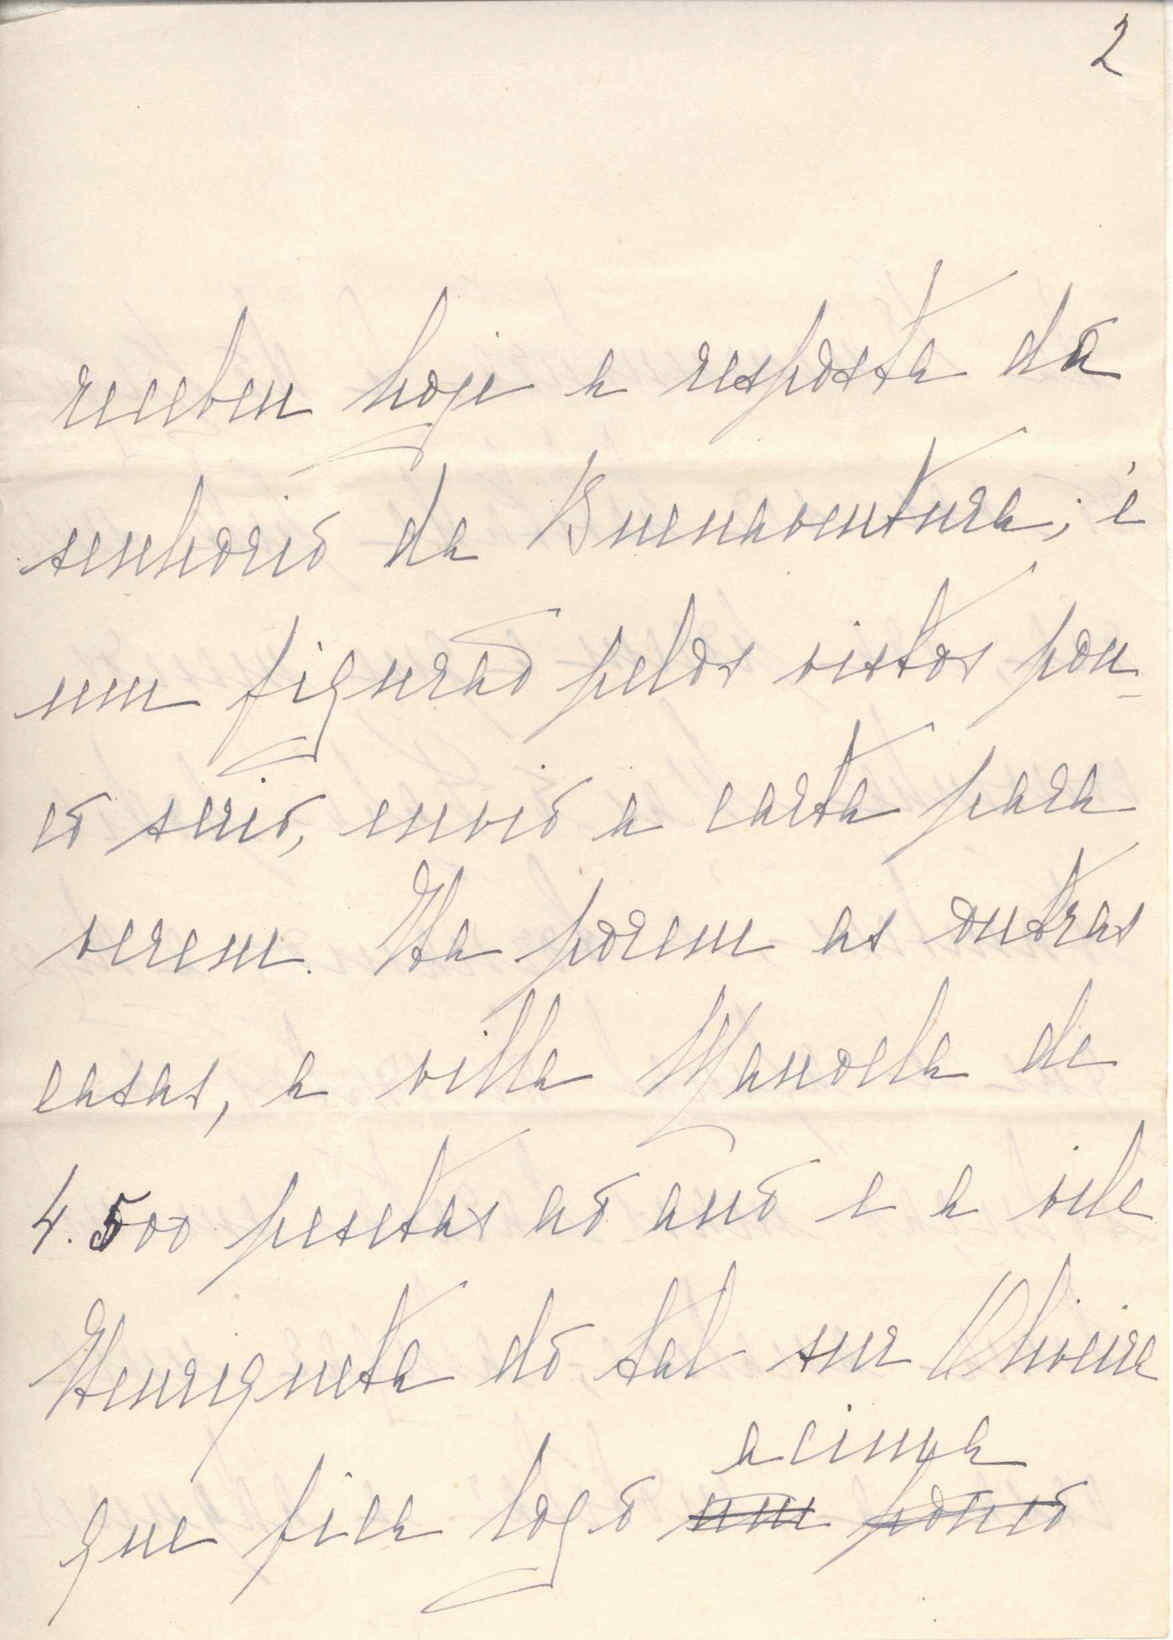 2
recebeu hoje a resposta da
senhorio da Buenaventura; é
um figurão pelos vistos pou-
co serio, envio a carta para
verem. Ha porem as outras
casas, a villa Manoela de
4.500 pesetas ao ano e a vila
Henriqueta do tal snr Oliveira
acima
que fica logo um pouco